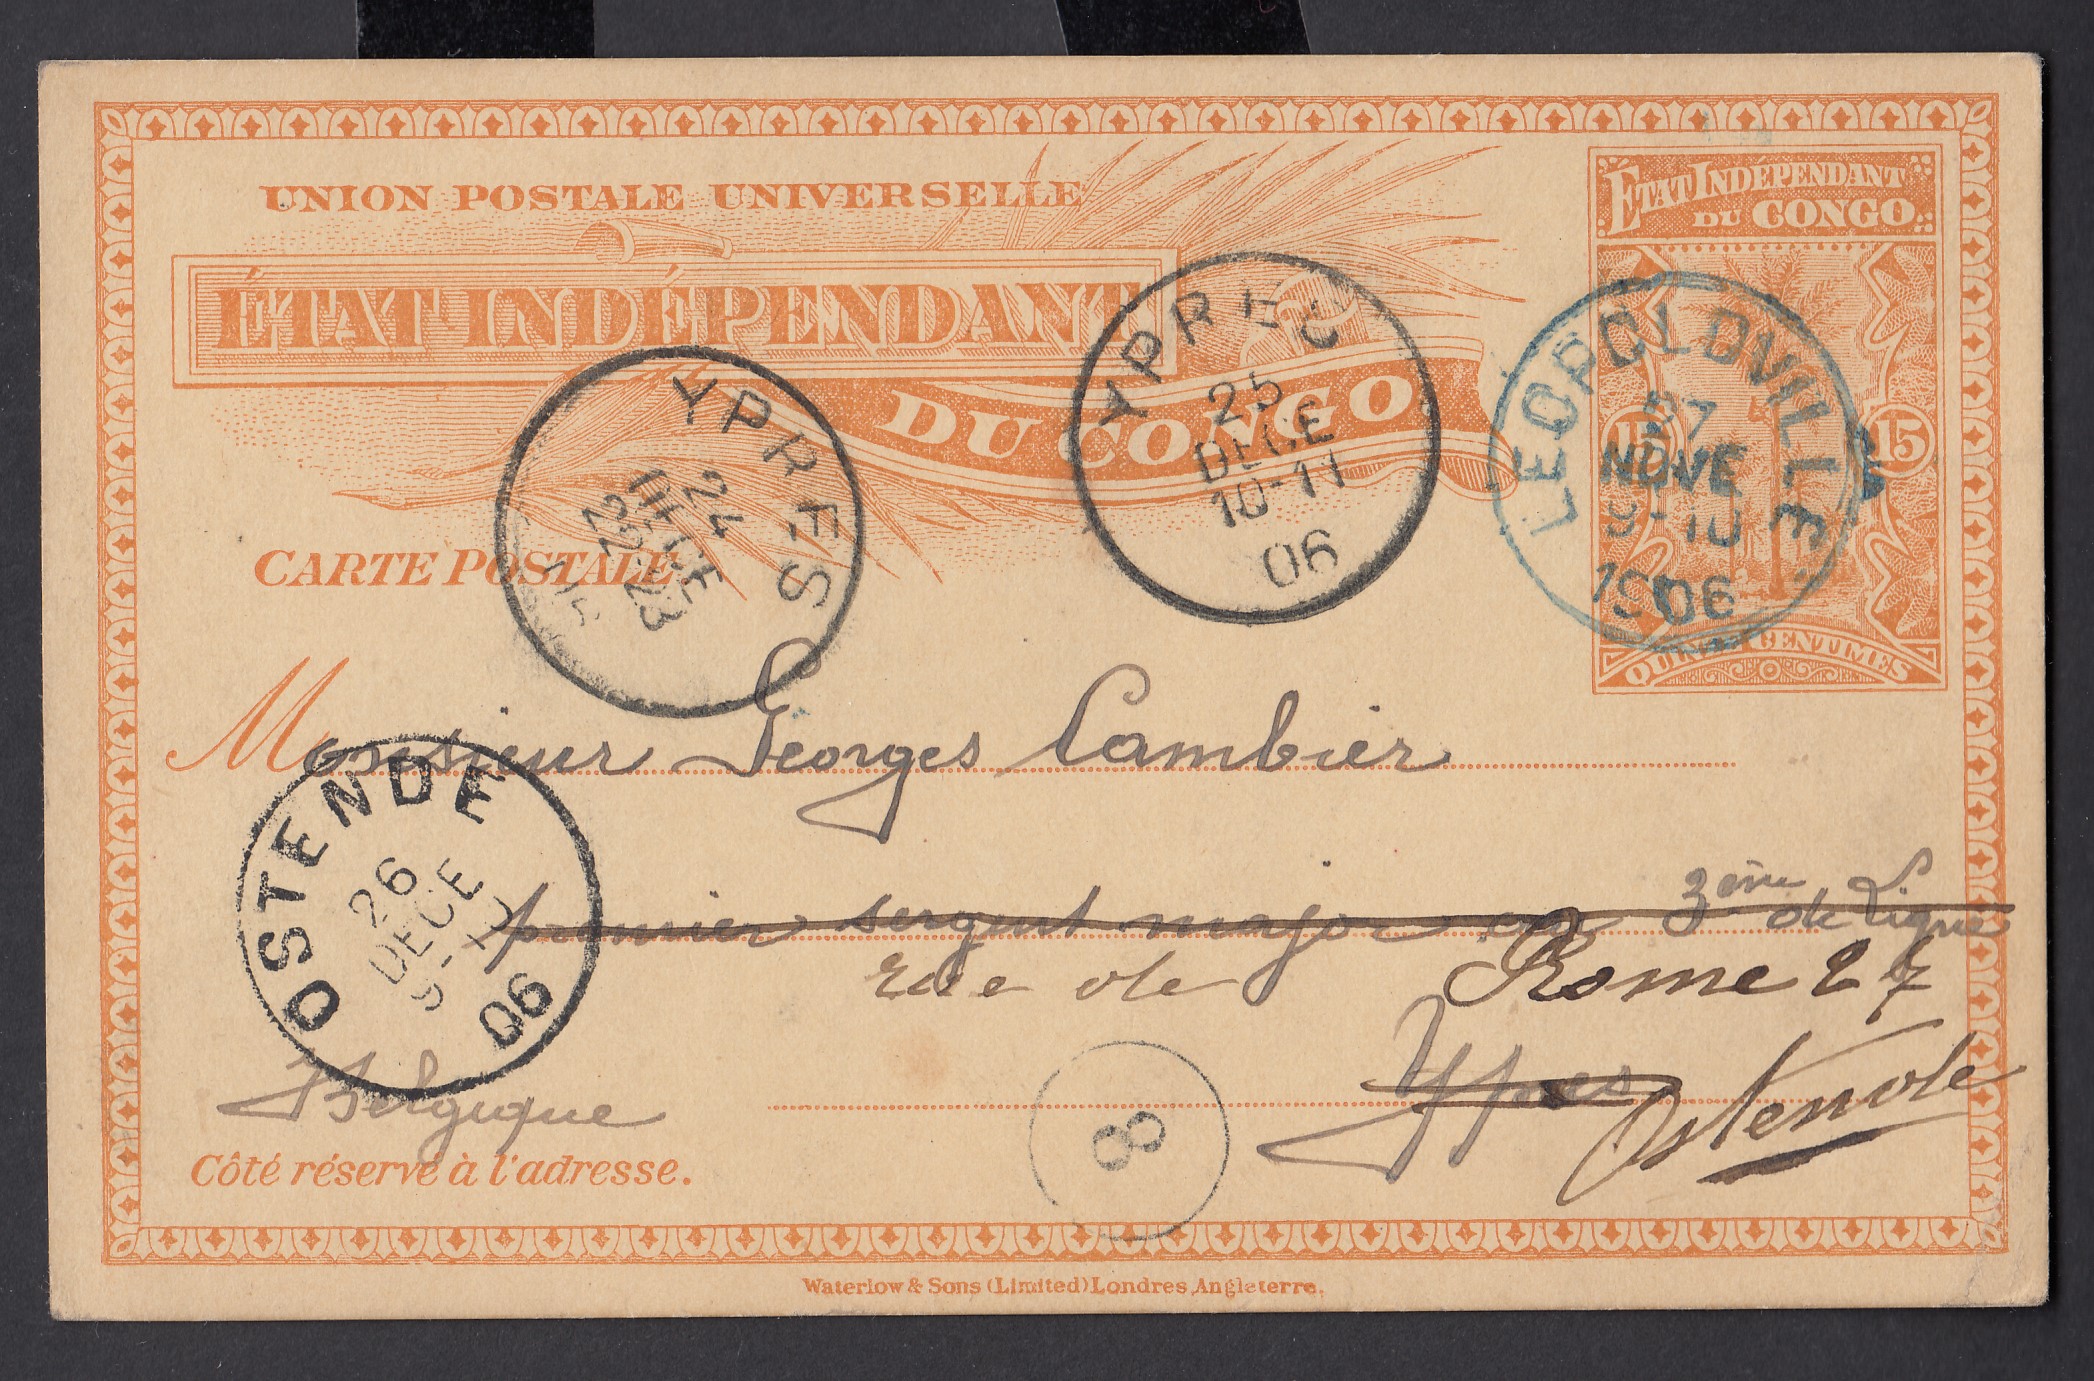 UNION POSTALE UNIVERSELLE
ÉTAT INDÉPENDANT
DU CONGO
CARTE POSTALE
ÉTAT INDÉPENDANT
DU CONGO
15 15
QUINZE CENTIMES
LEOPOLDVILLE
27
NOVE
9-10
1906
YPRES
25
DECE
10-11
06
YPRES
24
DECE
22-23
Monsieur Georges Cambier
OSTENDE
26
DECE
06
premier sergent major au 3ème de Ligne
rue de Rome 27
Ypres
Ostende
Belgique
8
Côté réservé à l'adresse.
Waterlow & Sons (Limited) Londres, Angleterre.